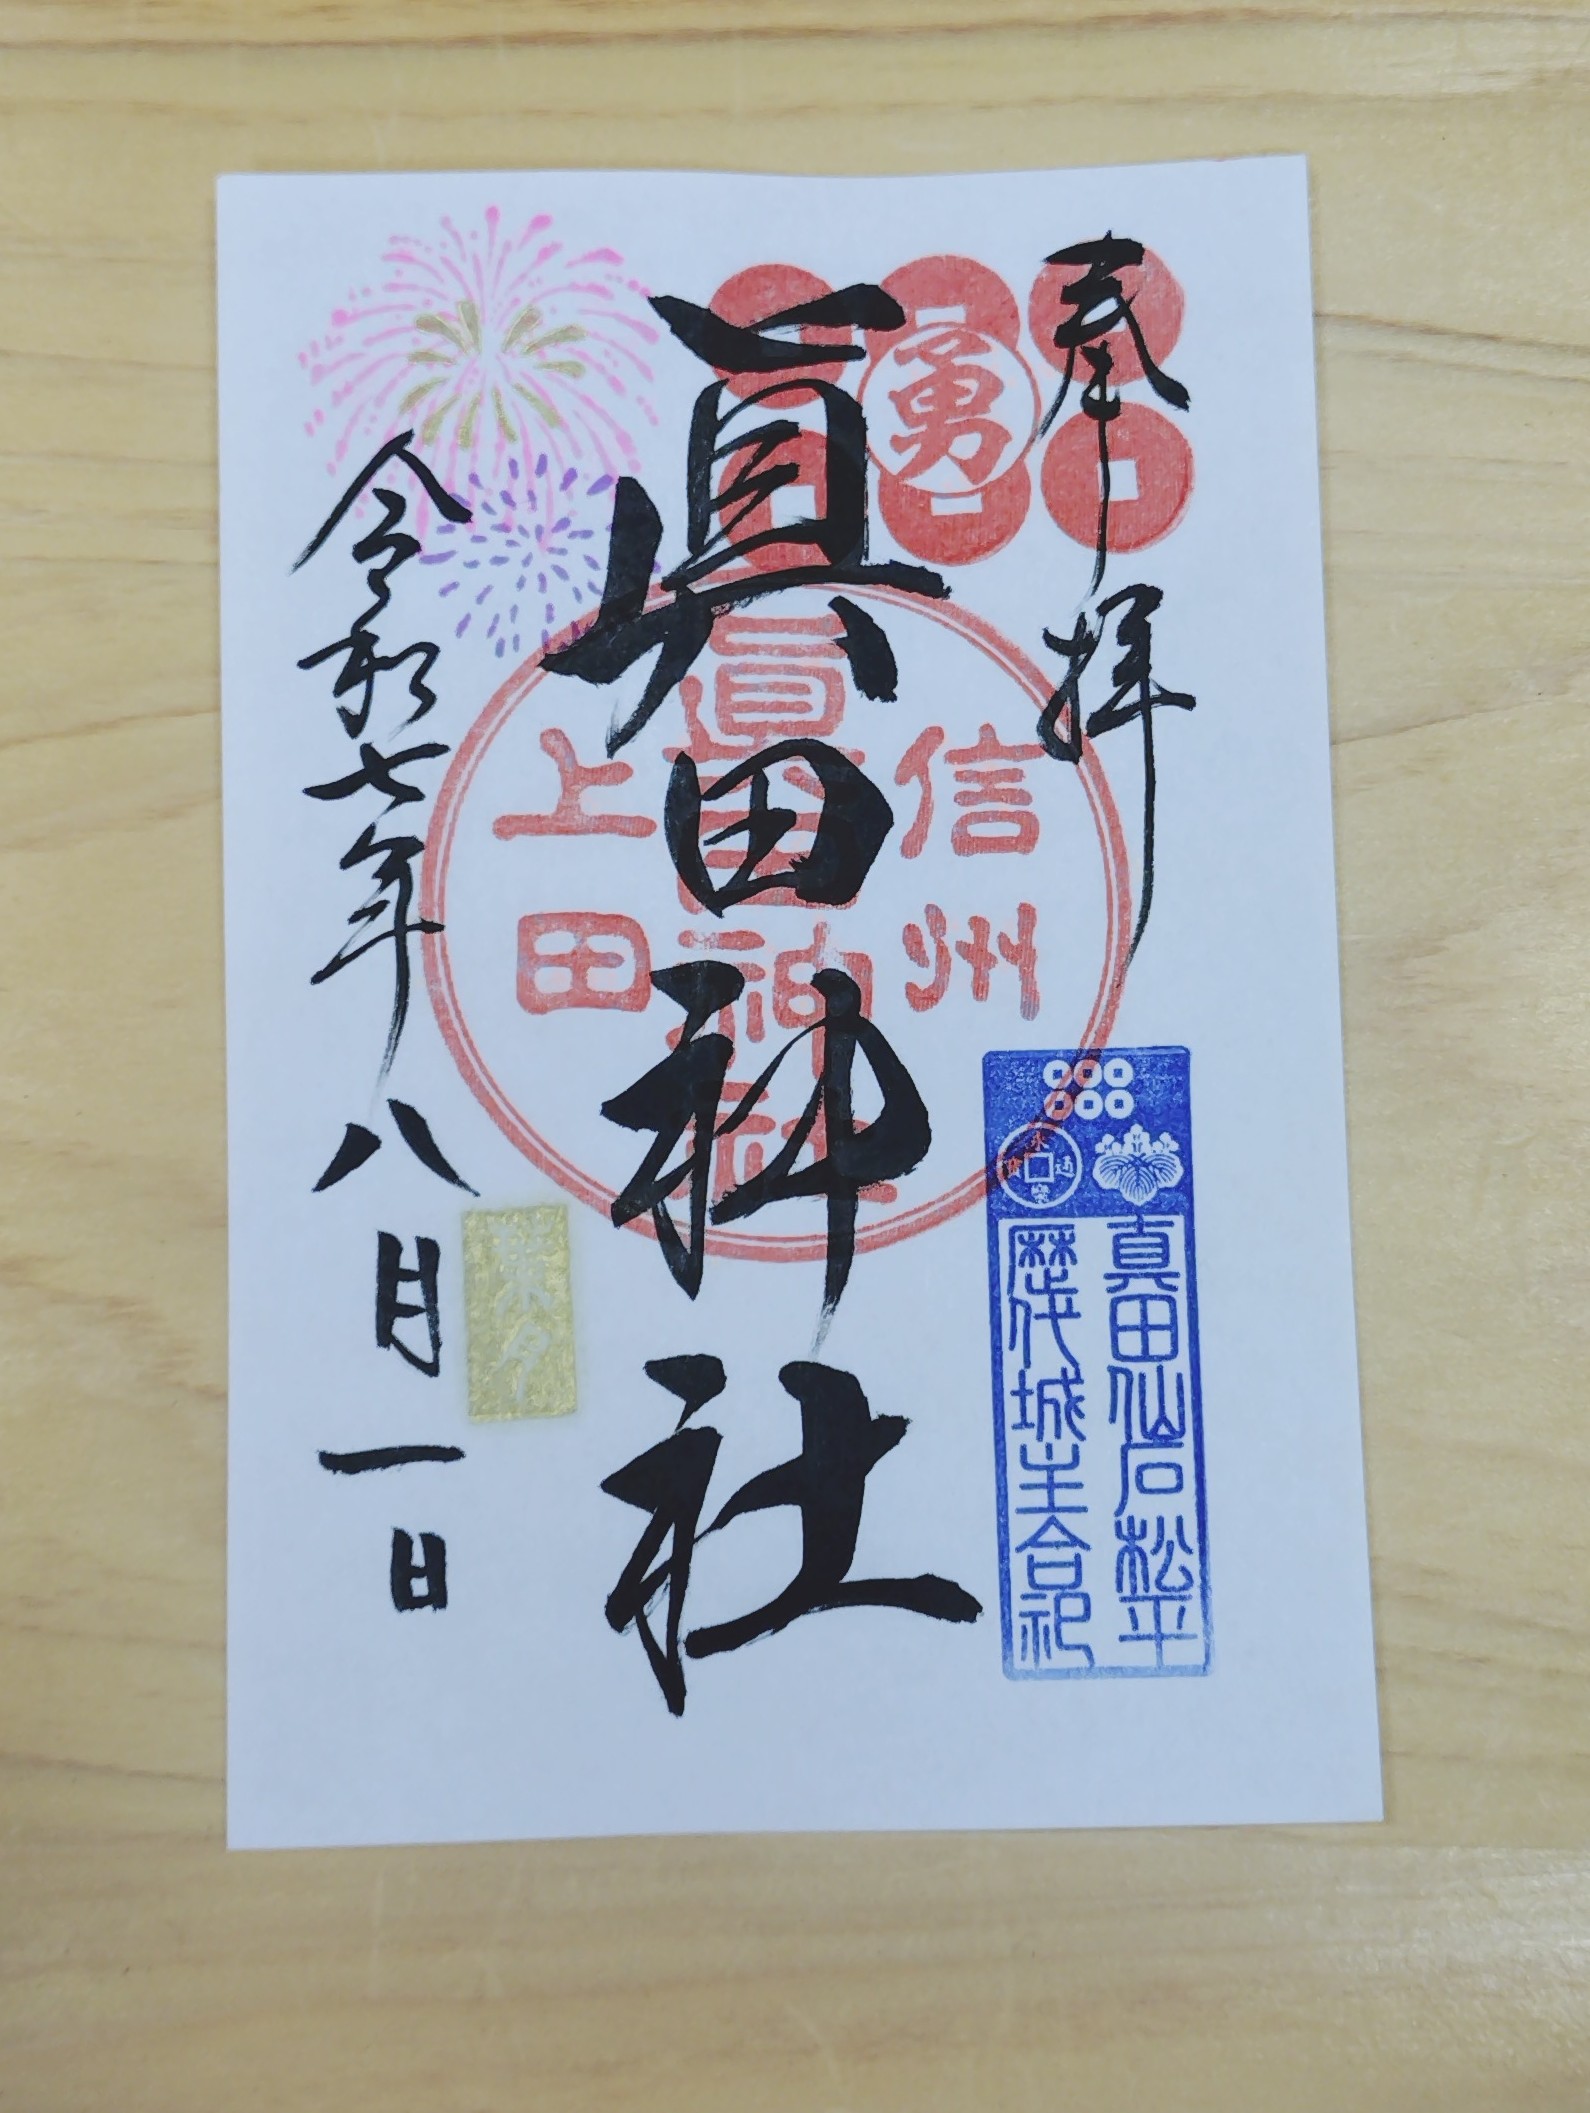 奉拝
勇
眞田神社
信州
眞田神社
上田
真田仙石松平
歴代城主合祀
永楽通寳
葉月
令和七年八月一日